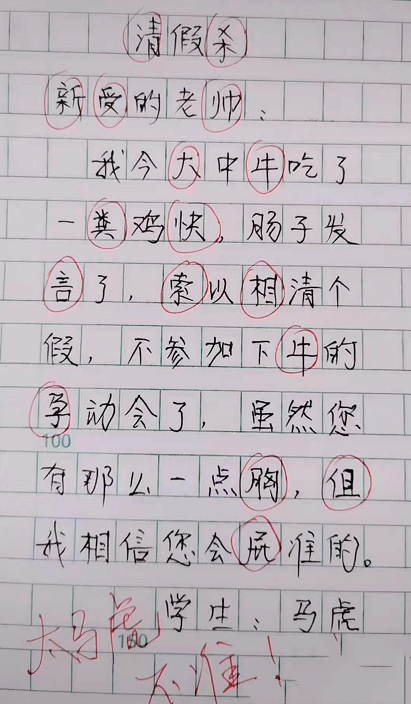 清假杀
新受的老帅：
我今大中牛吃了
一粪鸡快，肠子发
言了，索以相清个
假，不参加下牛的
孕动会了，虽然您
100
有那么一点胸，但
我相信您会屁准的。
学生：马虎
100
太马虎
不准！